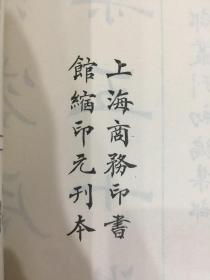 上海商務印書
館縮印元刊本